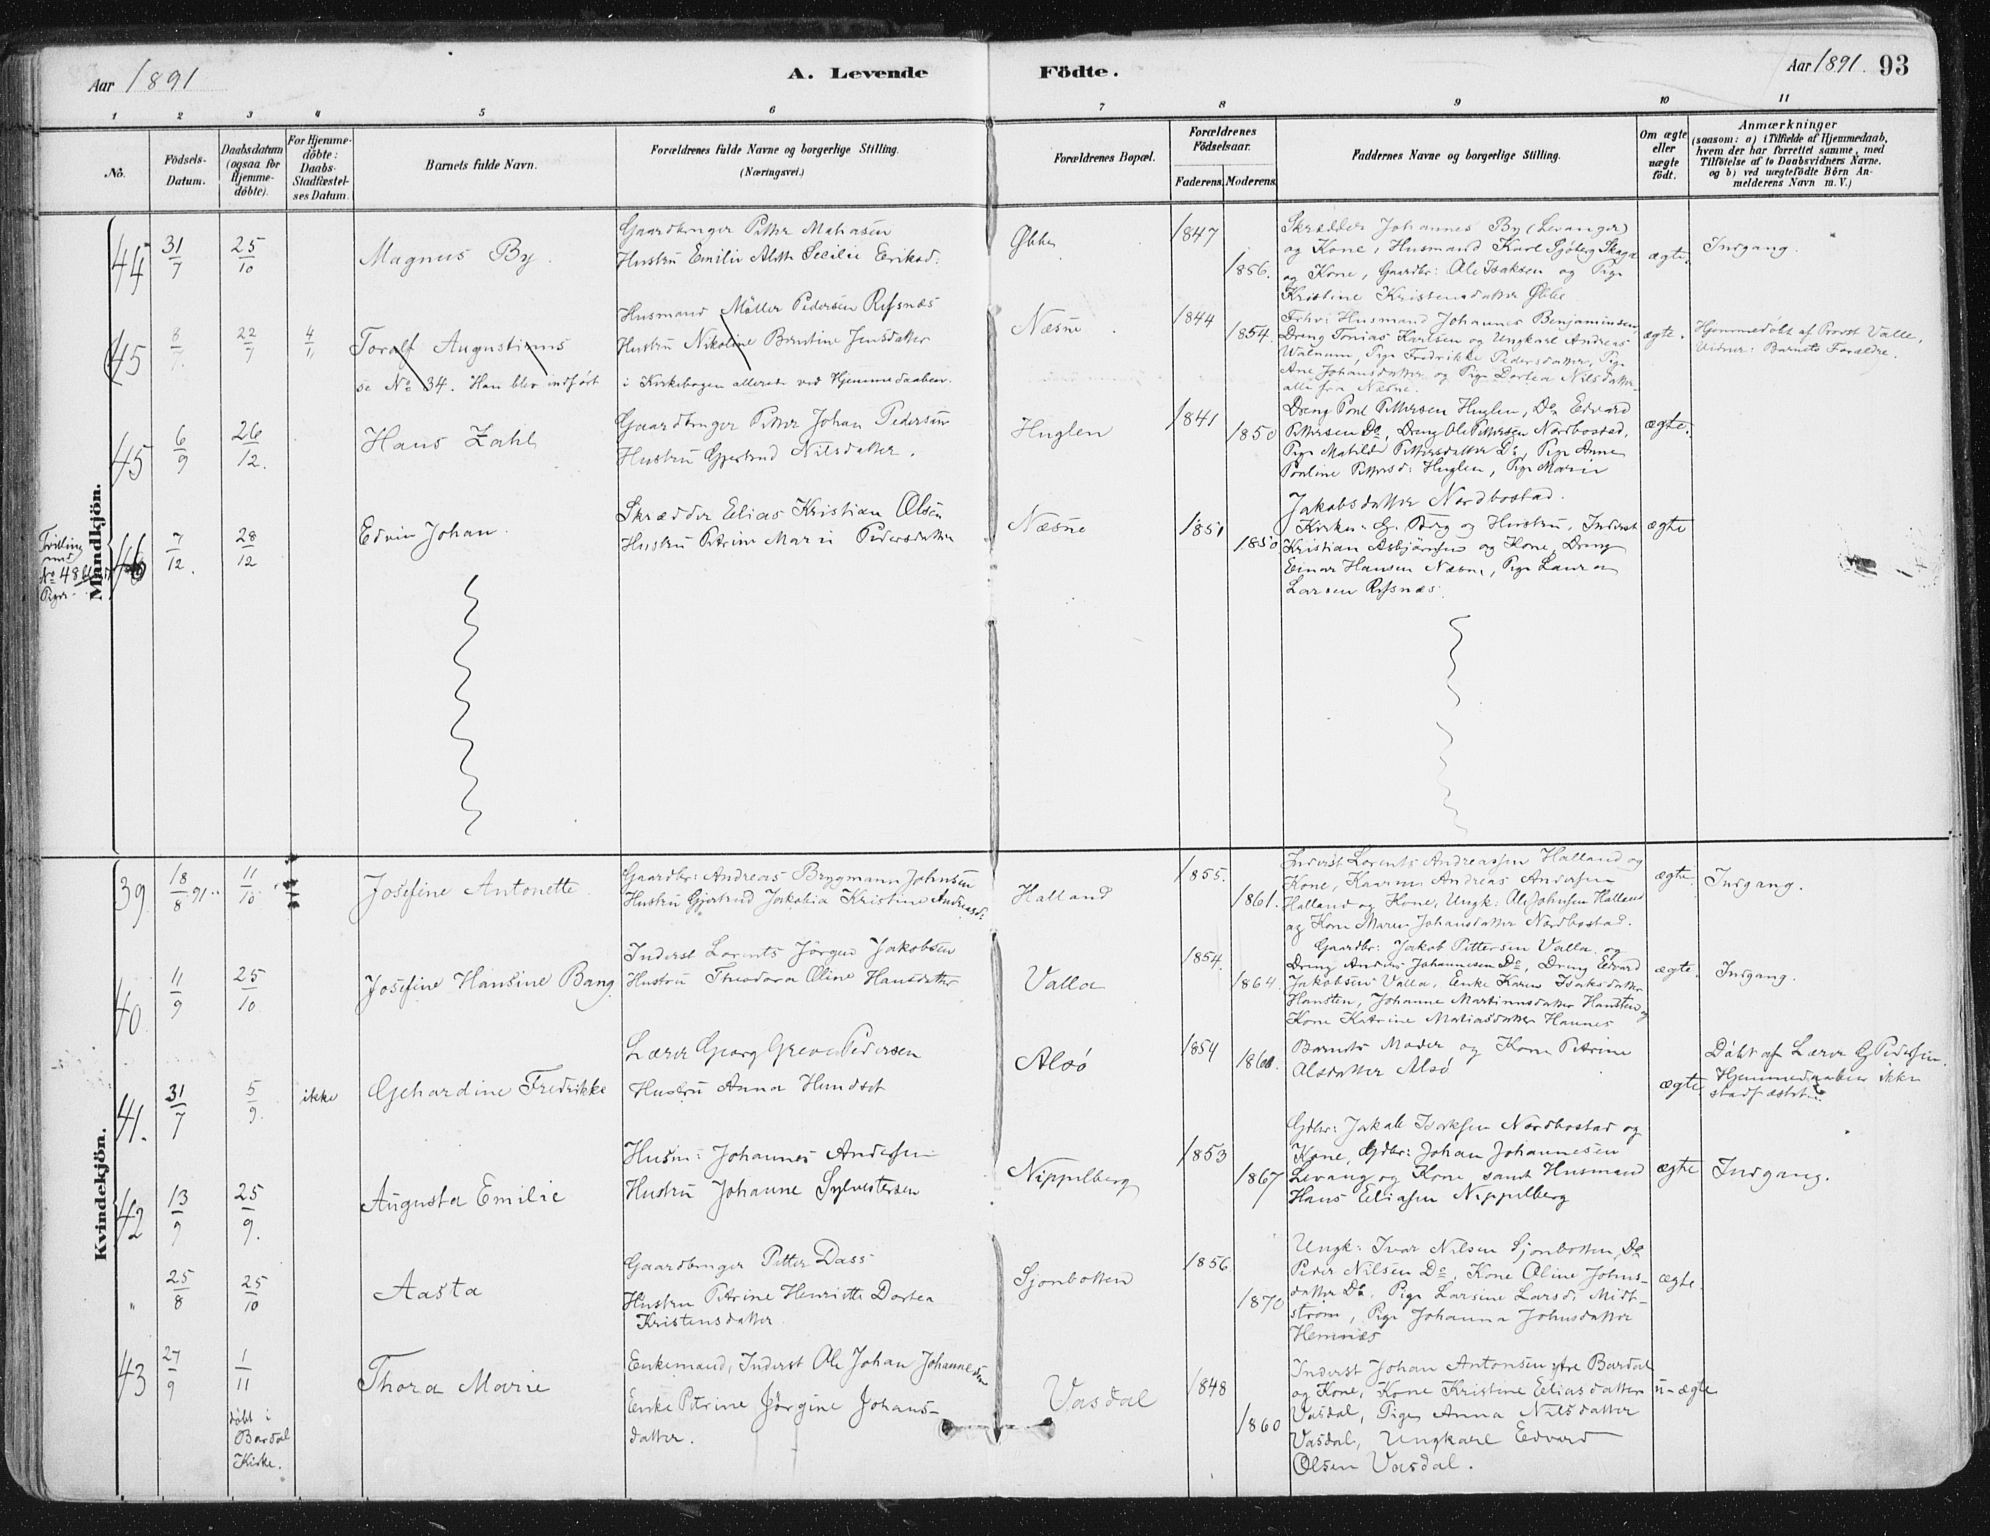 Aar 1891
A. Levende Födte.
Aar 1891. 93
1 2 3 4 5 6 7 8 9 10 11
No.
Födsels-Datum.
Daabsdatum (ogsaa for Hjemme-döbte).
For Hjemme-döbte: Daabs-Stadfæstel-ses Datum.
Barnets fulde Navn.
Forældrenes fulde Navne og borgerlige Stilling.
(Næringsvei.)
Forældrenes Bopæl.
Forældrenes Födselsaar.
Faderens. Moderens.
Faddernes Navne og borgerlige Stilling.
Om ægte eller uægte födt.
Anmærkninger
(saasom: a) i Tilfælde af Hjemmedaab, hvem der har forrettet samme, med Tilföielse af to Daabsvidners Navne. og b) ved uægtefödte Börn An-melderens Navn m. V.)
Mandkjön.
44 31/7 25/10 Magnus By.
Gaardbruger Petter Mathisen
Hustru Emilie Aleth Secilie Eriksd.
Øbbe 1847 1856.
Skrædder Johannes By (Levanger)
og Kone, Husmand Karl Sjøberg Skaga
og Kone, Gaardbr: Ole Isaksen og Pige
Kristine Kristensdatter Øbbe
ægte. Indgang.
45 8/7 22/7 4/1 Toralf Augustinus
se No 34. Han blev indført
Husmand Møller Pedersen Refsnæs
Hustru Nikoline Berntine Jensdatter
i Kirkebogen allerede ved Hjemmedaaben.
Næsne 1844 1854.
Frhv: Husmand Johannes Benjaminsen,
Dreng Tonias Karlsen og Ungkarl Andreas
Walnum, Pige Fredrikke Pedersdatter, Pige
Ane Johansdatter og Pige Dortea Nilsdatter
alle fra Næsne.
ægte.
Hjemmedøbt af Provst Valle,
Vidner: Barnets Forældre.
45 6/9 26/12. Hans Zahl
Gaardbruger Petter Johan Pedersen
Hustru Gjertrud Nilsdatter.
Huglen 1841 1850
Dreng Poul Pettersen Huglen, Do Edvard
Pettersen Do, Dreng Ole Pettersen Nordbostad,
Pige Matilde Pettersdatter Do, Pige Anne
Pauline Pettersd: Huglen, Pige Marie
Jakobsdatter Nordbostad.
ægte.
Tvilling
med
No 48
Piger
46 7/12. 28/12 Edvin Johan.
Skrædder Elias Kristian Olsen
Hustru Petrine Marie Pedersdatter
Næsne 1851 1850
G. Berg og Hustru, Inderst
Kristian Asbjørnsen og Kone, Dreng
Einar Hansen Næsne, Pige Laura
Larsen Refsnæs.
ægte
Kvindekjön.
39 18/8 91. 11/10 Josefine Antonette.
Gaardbr: Andreas Brygmann Johnsen
Hustru Gjertrud Jakobia Kristine Andreasd:
Halland 1855. 1861.
Inderst Lorents Andreassen Halland og
Kone, Andreas Andersen
Halland og Kone, Ungk: Ole Johnsen Halland
og Kone Maren Johansdatter Nordbostad.
ægte. Indgang.
40 11/9 25/10 Josefine Hansine Bang
Inderst Lorents Jørgen Jakobsen
Hustru Theodora Oline Hansdatter
Valla 1854. 1864.
Gaardbr: Jakob Pettersen Valla og
Dreng Anders Johannesen Do, Dreng Edvard
Jakobsen Valla, Enke Karen Isaksdatter
Hansten, Johanne Martinusdatter Hansten og
Kone Katrine Matiasdatter Hannes
ægte. Indgang.
41. 31/7 5/9. ikke Gehardine Fredrikke
Lærer Georg Greve Pedersen
Hustru Anna Hundset
Alsø 1854 1860.
Barnets Moder og Kone Petrine
Olsdatter Alsø
ægte
Døbt af Lærer G Pedersen.
Hjemmedaaben ikke
stadfæstet.
42 13/9 25/9. Augusta Emilie
Husm: Johannes Andersen
Hustru Johanne Sylvestersen
Nippelberg 1853 1867
Gdbr: Jakob Isaksen Nordbostad og
Kone, Gdbr: Johan Johannesen
Levang og Kone samt Husmand
Hans Eliasen Nippelberg
ægte Indgang.
" 25/8 25/10 Aasta
Gaardbruger Petter Dass
Hustru Petrine Henriette Dortea
Kristensdatter.
Sjonbotten 1856 1870
Ungk: Ivar Nilsen Sjonbotten, Do
Peder Nilsen Do, Kone Oline Johns-
datter Do, Pige Larsine Larsd: Midt-
strøm, Pige Johanna Johnsdatter
Hemnæs
ægte
43 27/9 1/11
døbt i
Bardal
Kirke.
Thora Marie
Enkemand, Inderst Ole Johan Johannesen
Enke Petrine Jørgine Johans-
datter.
Vasdal 1848 1860
Inderst Johan Antonsen ytre Bardal
og Kone, Kone Kristine Eliasdatter
Vasdal, Pige Anna Nilsdatter
Vasdal, Ungkarl Edvard
Olsen Vasdal.
u-ægte